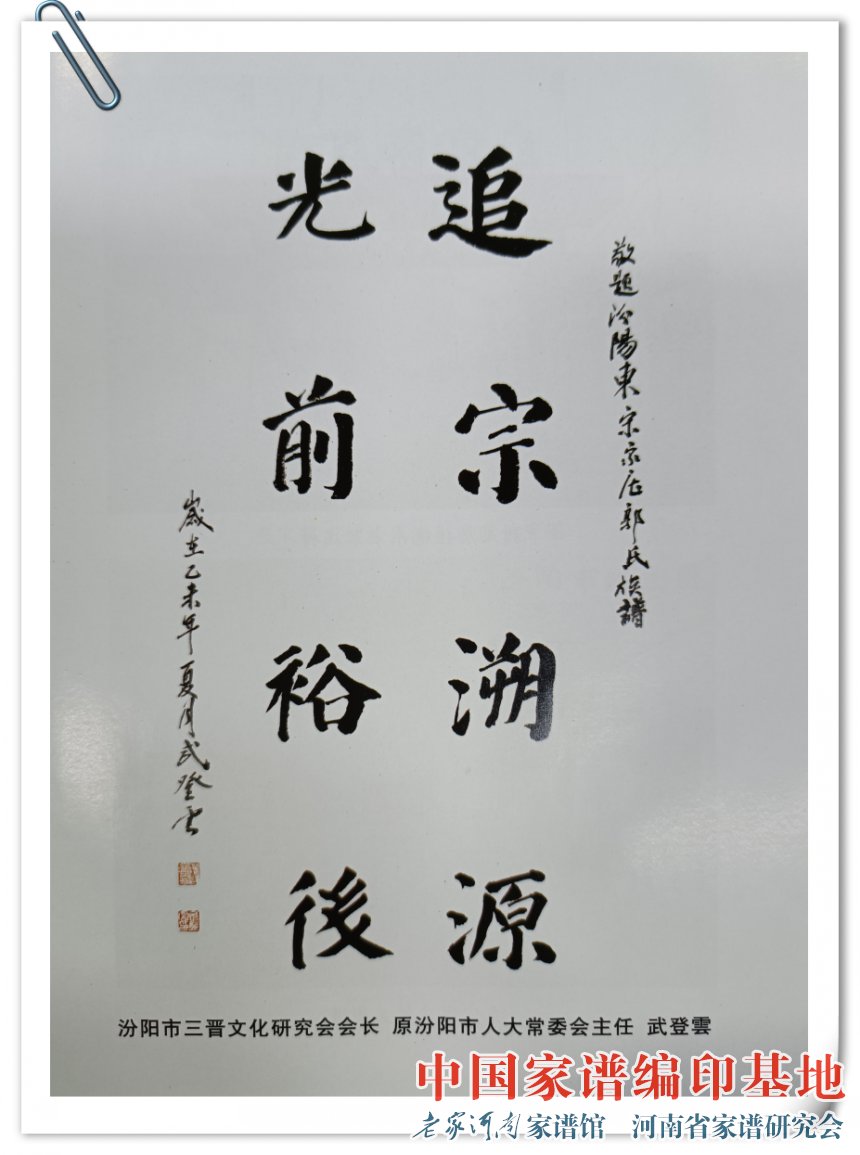 敬题汾陽東宋家庄郭氏族譜
追宗溯源
光前裕後
歲在乙未年夏月武登雲
汾阳市三晋文化研究会会长 原汾阳市人大常委会主任 武登雲
中国家谱编印基地
老家河南家谱馆 河南省家谱研究会